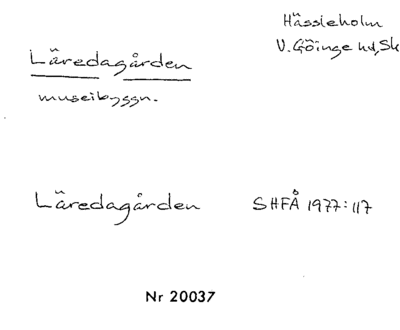 Hässleholm
V. Göinge hd, Sk
Läredagården
museibyggn.
Läredagården SHFÅ 1977:117
Nr 20037